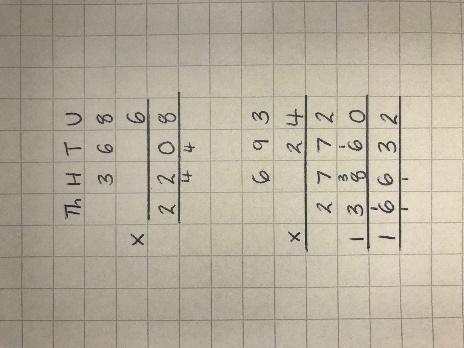 Th H T U
3 6 8
x 6
2 2 0 8
4 4
6 9 3
x 2 4
2 7 7 2
3 1
1 3 8 6 0
1
1 6 6 3 2
1 1